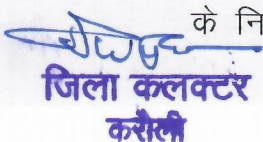 के नि
जिला कलक्टर
करौली